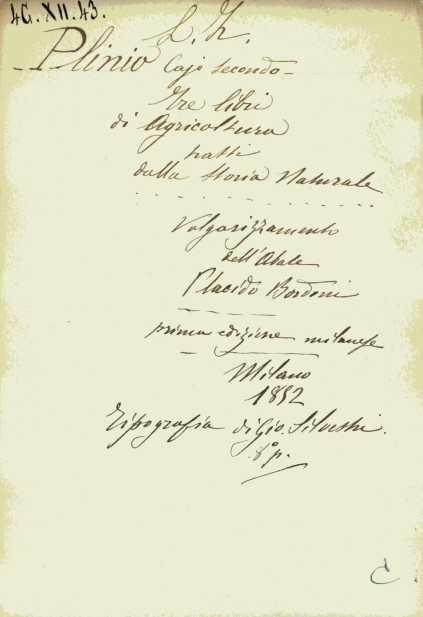 4G.XII.43.
L. Z.
Plinio Cajo secondo
Tre libri
di Agricoltura
tratti
dalla Storia Naturale
Volgarizzamento
dell'Abate
Placido Bordoni
prima edizione milanese
Milano
1852
Tipografia di Gio. Silvestri.
8º p.
C